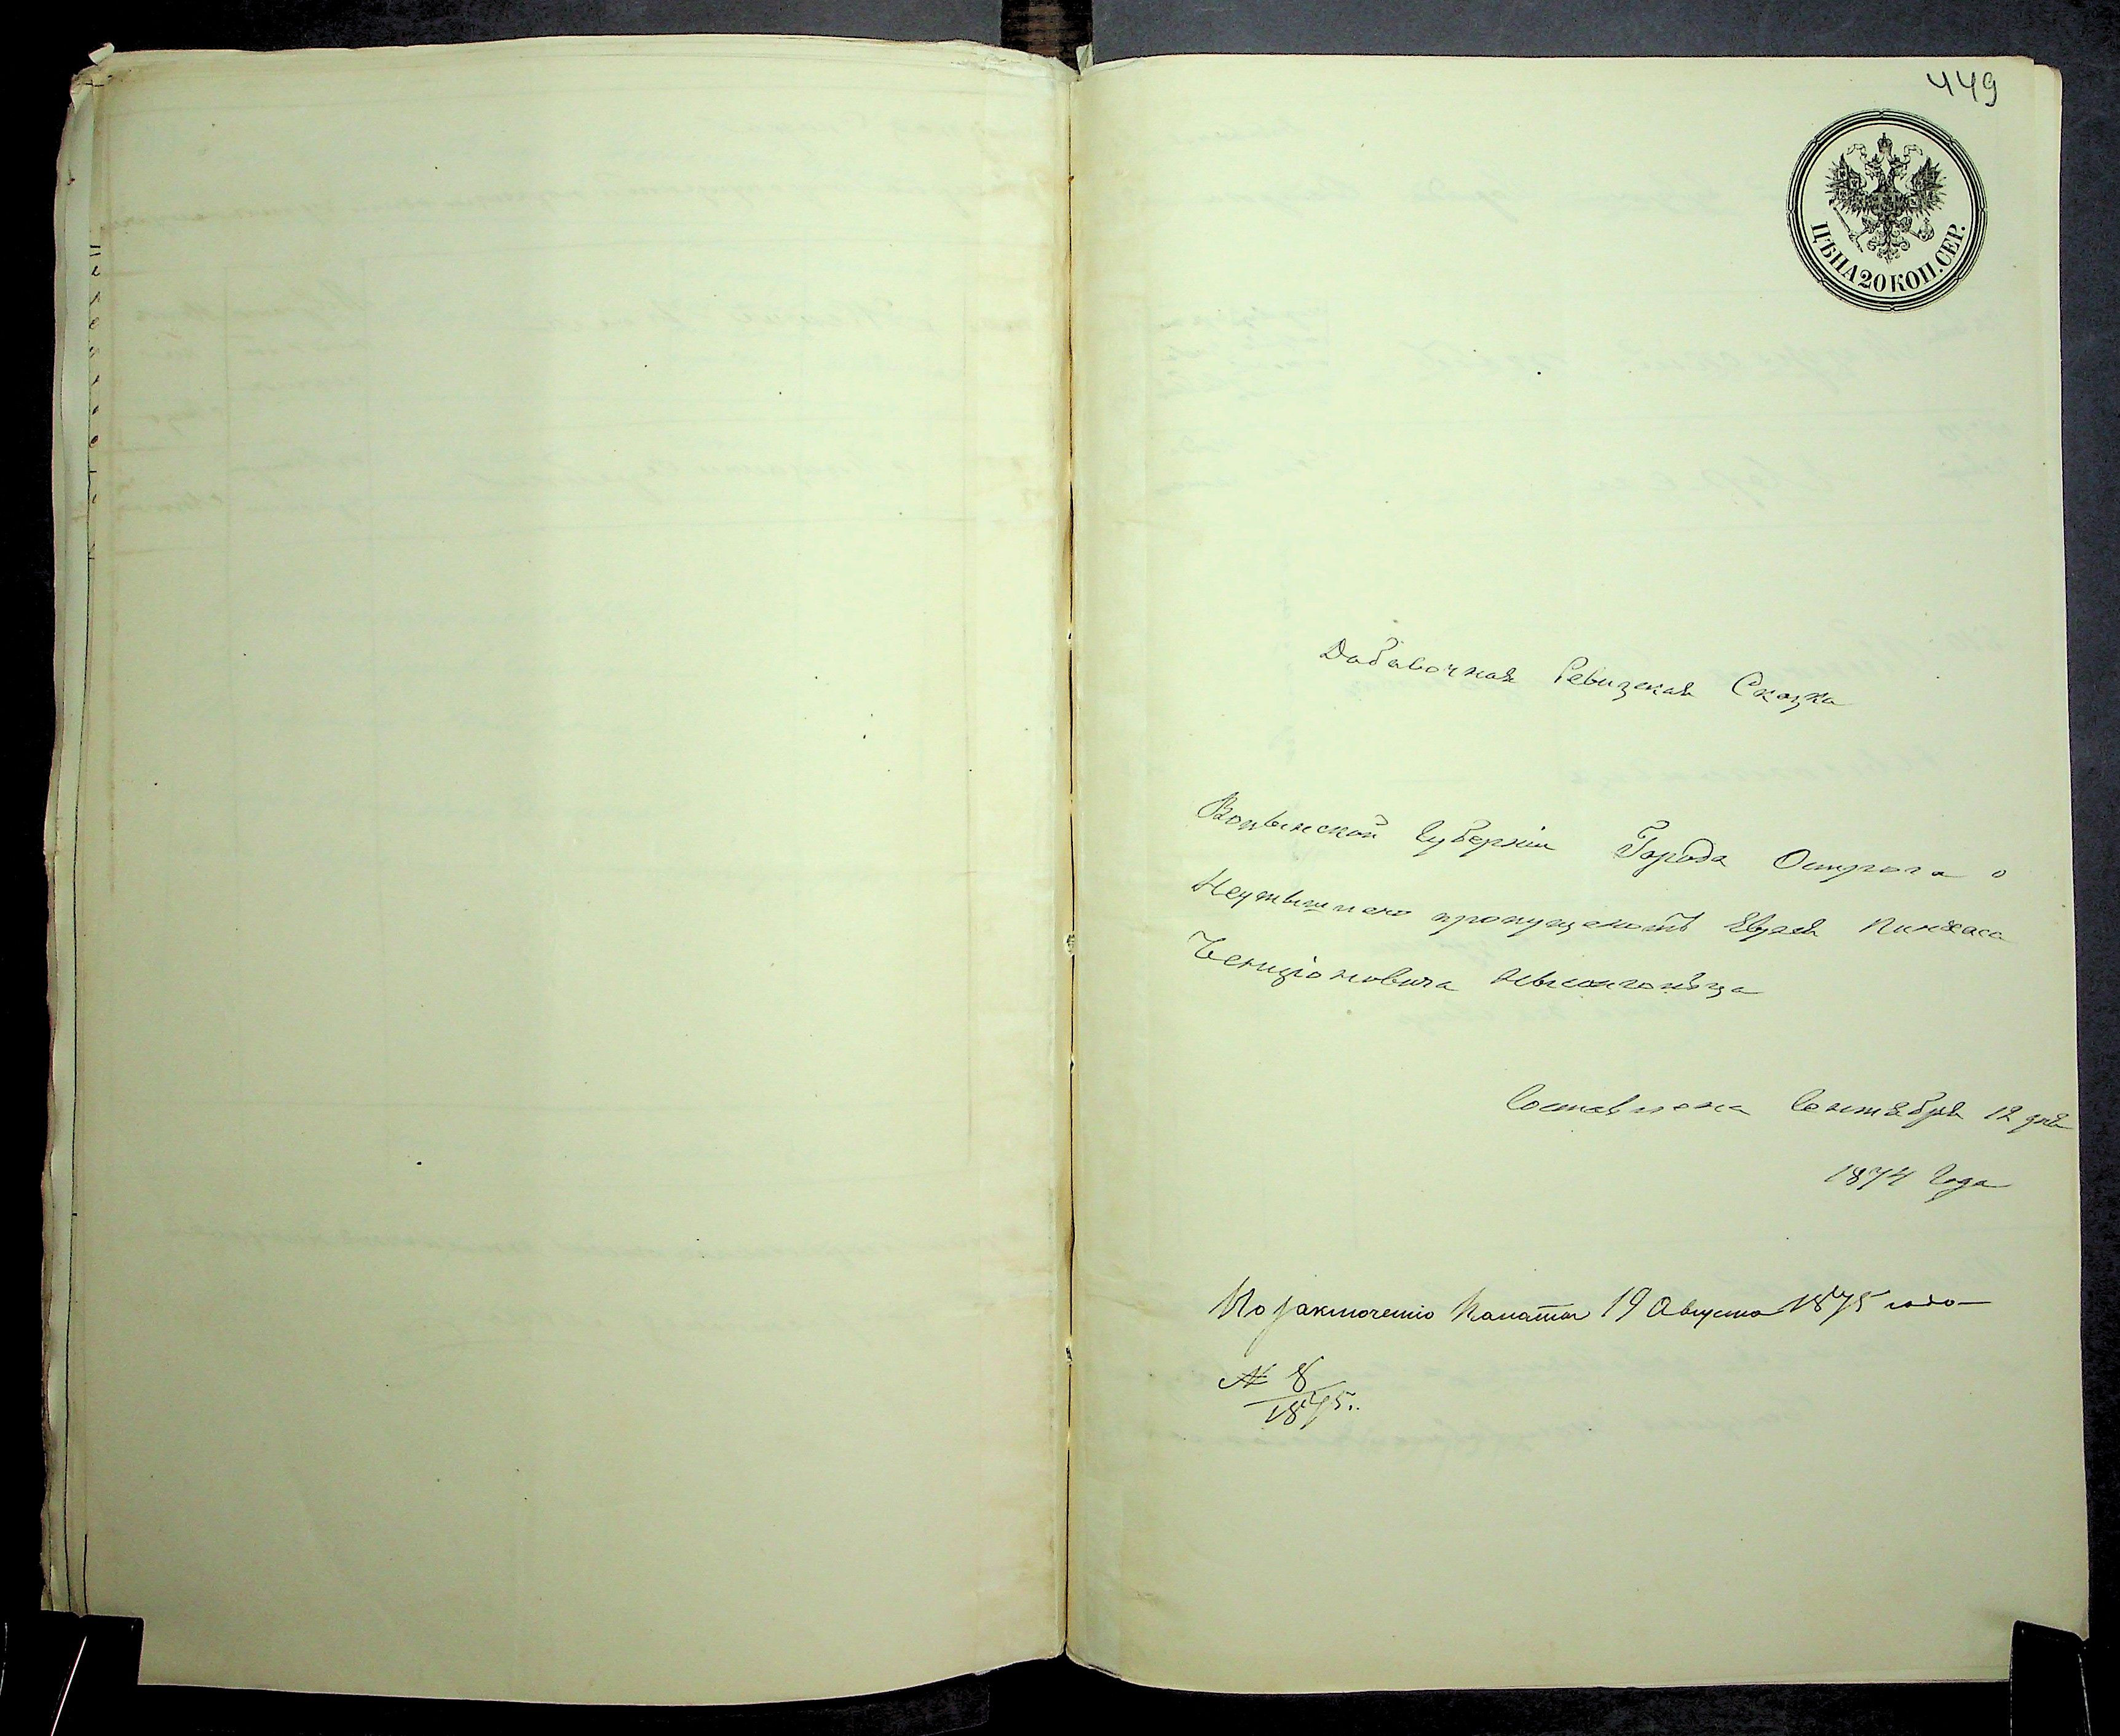 449
ЦѢНА 20 КОП. СЕР.
Добавочная Ревизская Сказка
Волынской Губерніи Города Острога о
Неумышлено пропущеномъ Еврея Пинхаса
Бенціоновича
Составлена Сентября 12 дня
1874 Года
По заключенію Палаты 19 Августа 1875 года
№ 8
1875.